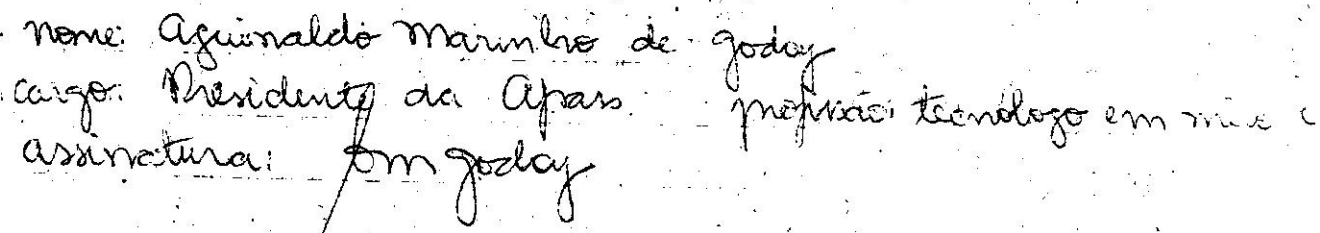 nome: Aguinaldo Marinho de Godoy
cargo: Presidente da Apass profissão: tecnólogo em
assinatura: Am Godoy